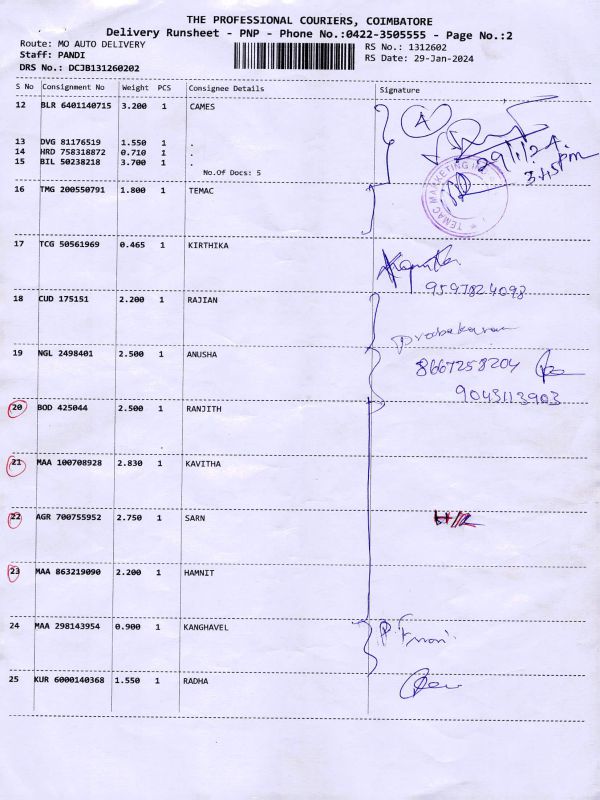 THE PROFESSIONAL COURIERS, COIMBATORE
Delivery Runsheet - PNP - Phone No.:0422-3505555 - Page No.:2
Route: MO AUTO DELIVERY RS No.: 1312602
Staff: PANDI RS Date: 29-Jan-2024
DRS No.: DCJB131260202
S No Consignment No Weight PCS Consignee Details Signature
12 BLR 6401140715 3.200 1 CAMES
4
13 DVG 81176519 1.550 1 .
14 HRD 758318872 0.710 1 .
15 BIL 50238218 3.700 1 .
29/1/24
3:45pm
No.Of Docs: 5
16 TMG 200550791 1.800 1 TEMAC
TEMAC MARKETING
17 TCG 50561969 0.465 1 KIRTHIKA
9597824098
18 CUD 175151 2.200 1 RAJIAN
Prabakaran
19 NGL 2498401 2.500 1 ANUSHA
8667258204
9043113903
20 BOD 425044 2.500 1 RANJITH
21 MAA 100708928 2.830 1 KAVITHA
22 AGR 700755952 2.750 1 SARN
23 MAA 863219090 2.200 1 HAMNIT
24 MAA 298143954 0.900 1 KANGHAVEL
25 KUR 6000140368 1.550 1 RADHA